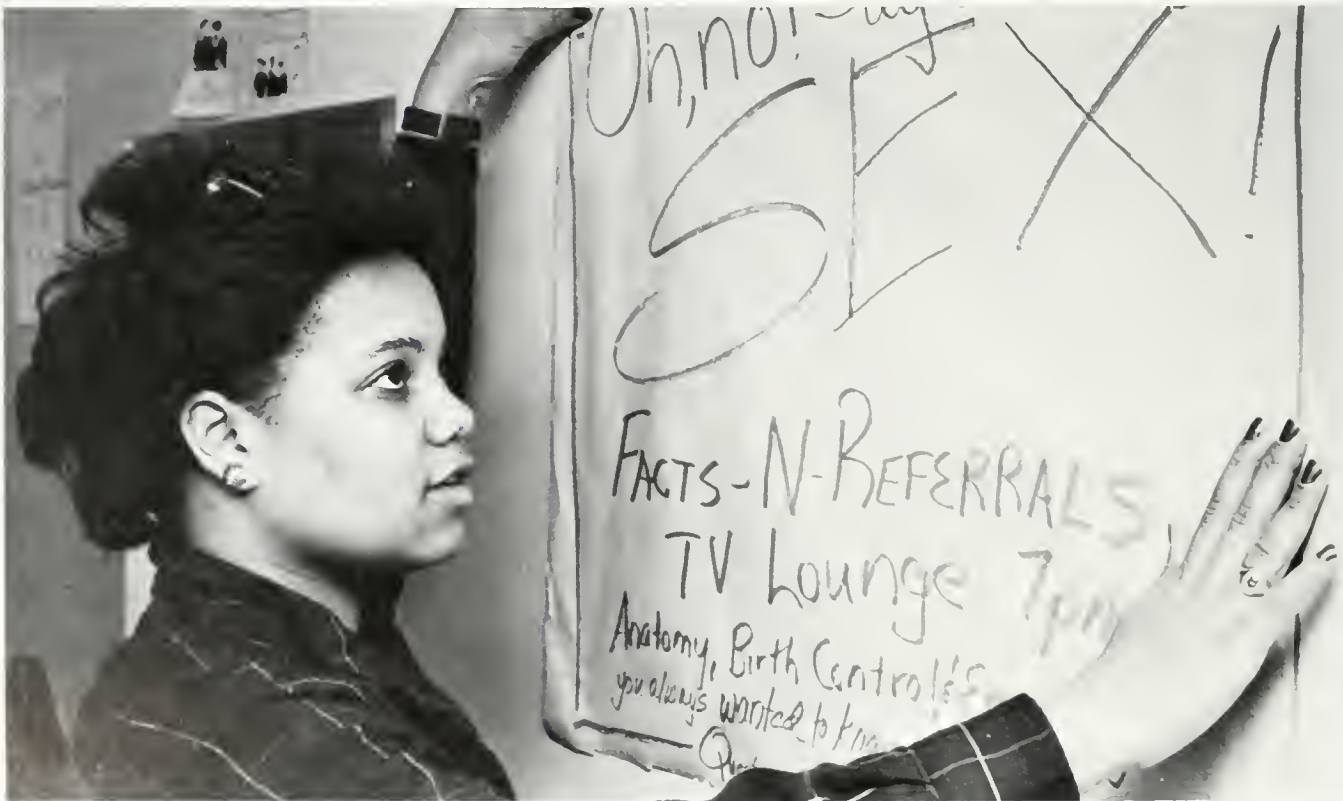 Oh, no!
SEX!
FACTS-N-REFERRALS
TV Lounge 7pm
Anatomy, Birth Control
you always wanted to